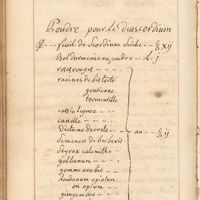 Poudre pour le diascordium
feuil de scordium seiche — ℥ xij
Bol darmenie en poudre — ℔ j
roses rouges —
racines de bistorte
gentianne
tormentille
cassia lignea —
canelle —
Dictame de crete — an — ℥ ij
semence de berberis
styrax calamithe —
galbanum —
gomme arabic —
laudanum opiatum
ou opium —
gingembre —